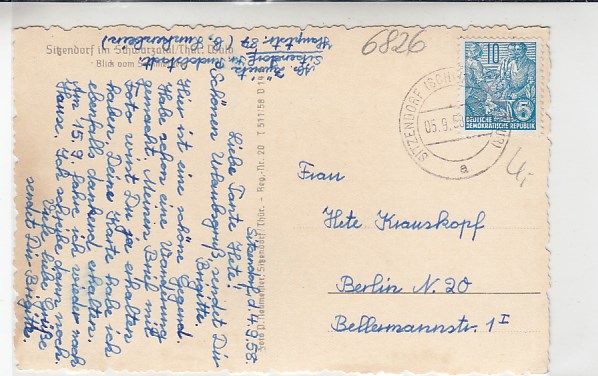 Sitzendorf im Schwarzatal/Thür. Wald
Blick vom
6826
10
5
DEUTSCHE
DEMOKRATISCHE REPUBLIK
SITZENDORF (SCHWARZATAL)
05.9.58
a
4,-
Frau
Hete Krauskopf
Berlin N. 20
Bellermannstr. 1 I
Foto D. Liebmeister, Sitzendorf/Thür. – Reg.-Nr. 20 T 511/58 D 14
Sitzendorf, d. 4.9.58.
Liebe Tante Hete!
Schönen Urlaubsgruß sendet Dir
Brigitte.
Hier ist eine schöne Gegend.
Habe schon eine Wanderung
gemacht. Meinen Brief mit
Foto wirst Du ja erhalten
haben. Deine Karte habe ich
ebenfalls dankend erhalten.
Am 15.9. fahre ich wieder nach
Hause. Ich schreibe dann noch
Viele liebe Grüße
sendet Dir Brigitte.
Sitzendorf
Hauptstr. 84 (b.